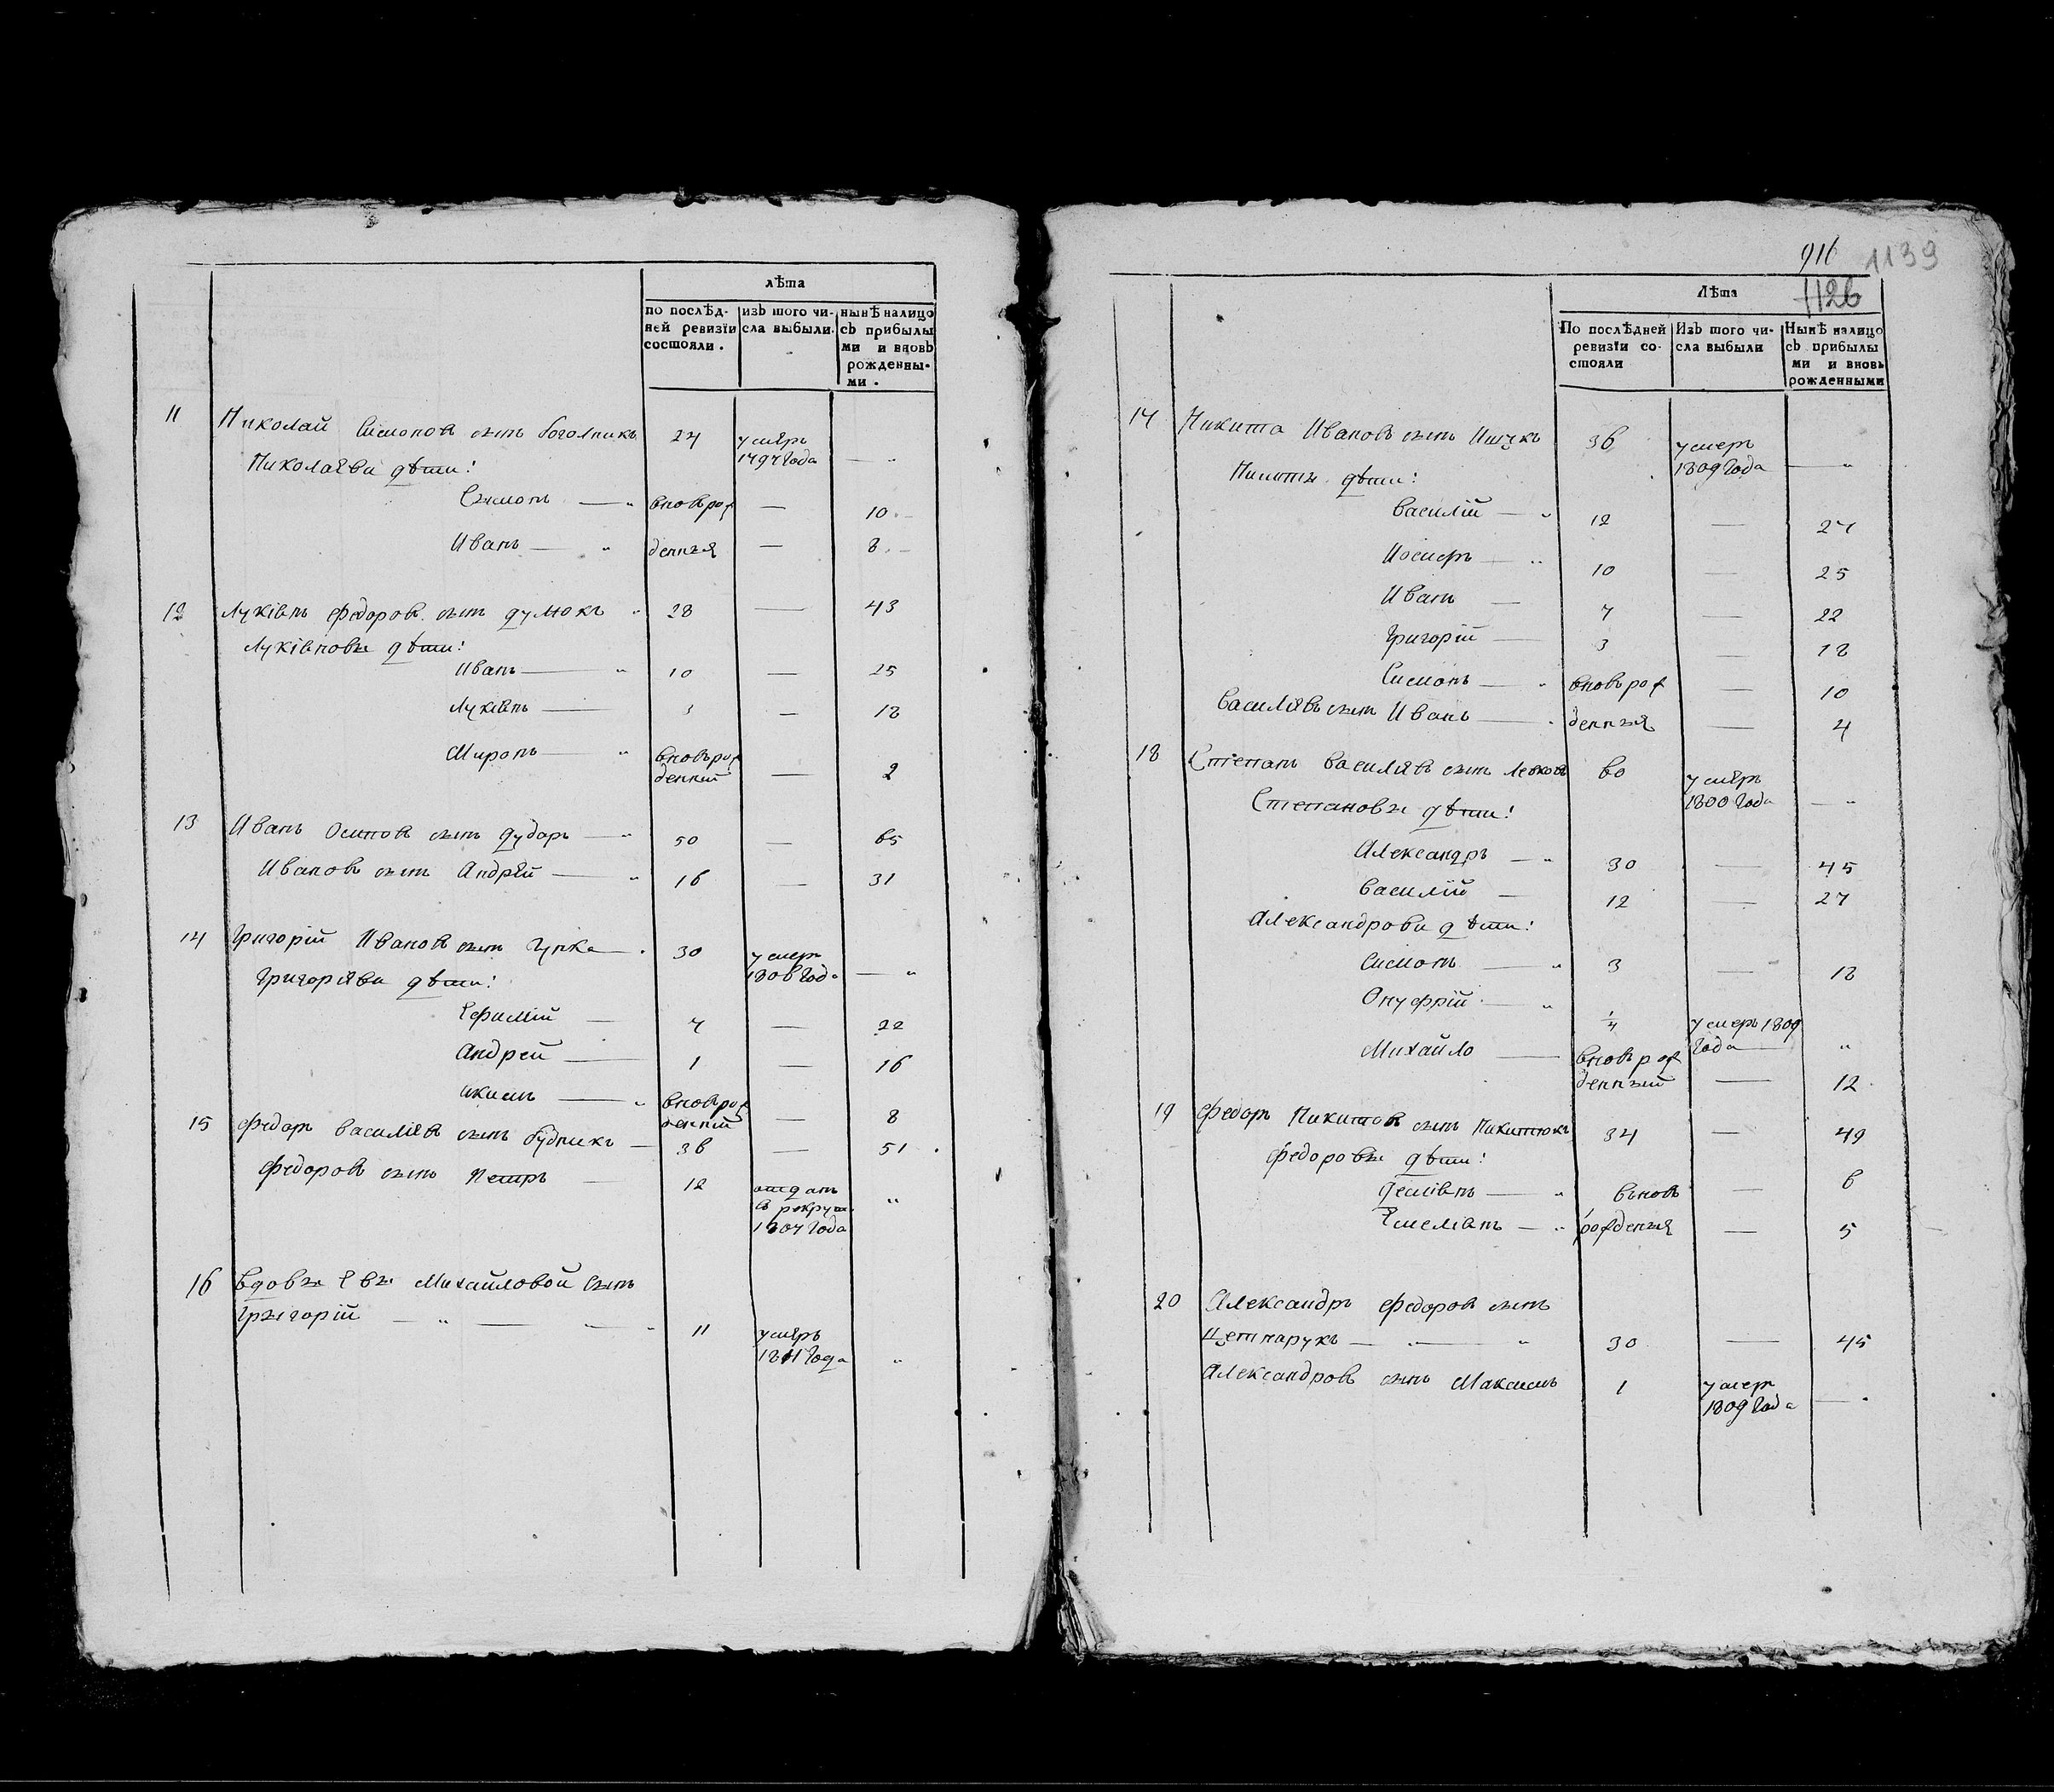 лѣта
по послѣд-
ней ревизїи
состояли.
изъ того чи-
сла выбыли.
нынѣ налицо
съ прибылы
ми и вновь
рожденны-
ми.
11 Николай Симоновъ сынъ 27 умеръ
1797 года — „
Николаеви дѣти:
Сымонъ — „ вноврож — 10
Иванъ — „ денныя — 8
12 Лукіянъ Федоров. сынъ Дулюкъ „ 28 — 43
Лукіяновы дѣти:
Иванъ — „ 10 — 25
Лукіянъ — 3 — 18
Миронъ — „ вновьрож
денный — 2
13 Иванъ Осиповъ сынъ Дударъ — „ 50 — 65
Ивановъ сынъ Андрей — „ 16 — 31
14 Григорій Ивановъ сынъ 30 умеръ
1806 года — „
Григоріеви дѣти:
Ефимій — 7 — 22
Андрей — 1 — 16
Якимъ — „ вновьрож
денный — 8
15 Федоръ Василіевъ сынъ Будникъ — 36 — 51
Федоровъ сынъ Петръ — 12 отданъ
въ рекрут.
1807 года „
16 Вдовы Евы Михайловой сынъ
Грыгорій — „ — — „ 11 умеръ
1811 года „
916 1139
1126
Лѣта
По послѣдней
ревизїи со-
стояли
Изъ того чи-
сла выбыли
Нынѣ налицо
съ прибылы
ми и вновь
рожденными
17 Никита Ивановъ сынъ Ищукъ 36 умеръ
1809 года — „
Никиты дѣти:
Василій — „ 12 — 27
Иосифъ — „ 10 — 25
Иванъ — 7 — 22
Григорій — 3 — 18
Симонъ — „ вновьрож — 10
Василіевъ сынъ Иванъ — „ денныя — 4
18 Степанъ Василіевъ сынъ 60 умеръ
1800 года — „
Степановы дѣти:
Александръ — „ 30 — 45
Василій — 12 — 27
Александрови дѣти:
Симонъ — „ 3 — 18
Онуфрій — „ 1/4 умеръ 1809
года — „
Михайло — вновьрож
денный — 12
19 Федоръ Никитовъ сынъ Никитюкъ 34 — 49
Федоровы дѣти:
Деміянъ — „ вьновь — 6
Емеліянъ — „ рожденыя — 5
20 Александръ Федоровъ сынъ
30 — 45
Александровъ сынъ Максимъ 1 умеръ
1809 года — „